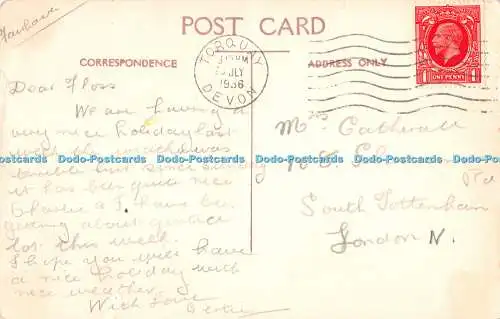 Fairhaven
POST CARD
CORRESPONDENCE
ADDRESS ONLY
TORQUAY
JLY
1936
DEVON
ONE PENNY
Dear Floss
We are having a
very nice holiday last
week the weather was
terrible but since Sunday
it has been quite nice
& I have been
getting about quite a
lot this week.
I hope you will have
a nice holiday with
nice weather.
With Love
Mrs
South Tottenham
London N.
Dodo-Postcards Dodo-Postcards Dodo-Postcards Dodo-Postcards Dodo-Postcards Dodo-Postcards